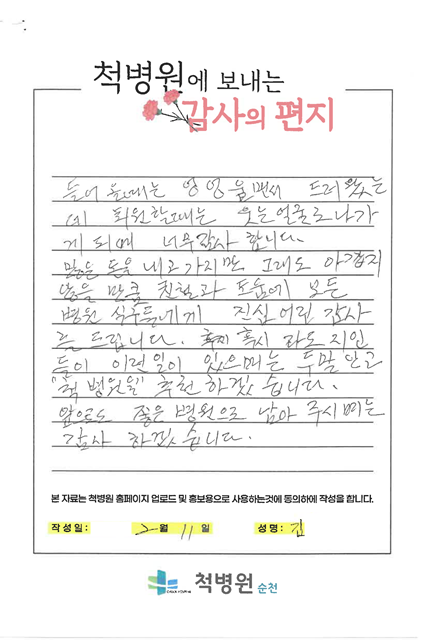 척병원에 보내는
감사의 편지
들어 올때는 엉엉울면서 드러 왔는
데 퇴원할때는 웃는얼굴로나가
게되며 너무감사 합니다.
많은 돈을 내고 가지만 그래도 아깝지
않을 만큼 친절과 도움에 모든
병원 식구들에게 진심 어린 감사
를 드립니다. 혹시 라도 지인
들이 이런일이 있으며는 두말안고
"척 병원을" 추천 하겠 습니다.
앞으로도 좋은 병원으로 남아 주시며는
감사 하겠 습니다.
본 자료는 척병원 홈페이지 업로드 및 홍보용으로 사용하는것에 동의하에 작성을 합니다.
작성일 : 2월 11일 성명 : 김
척병원 순천